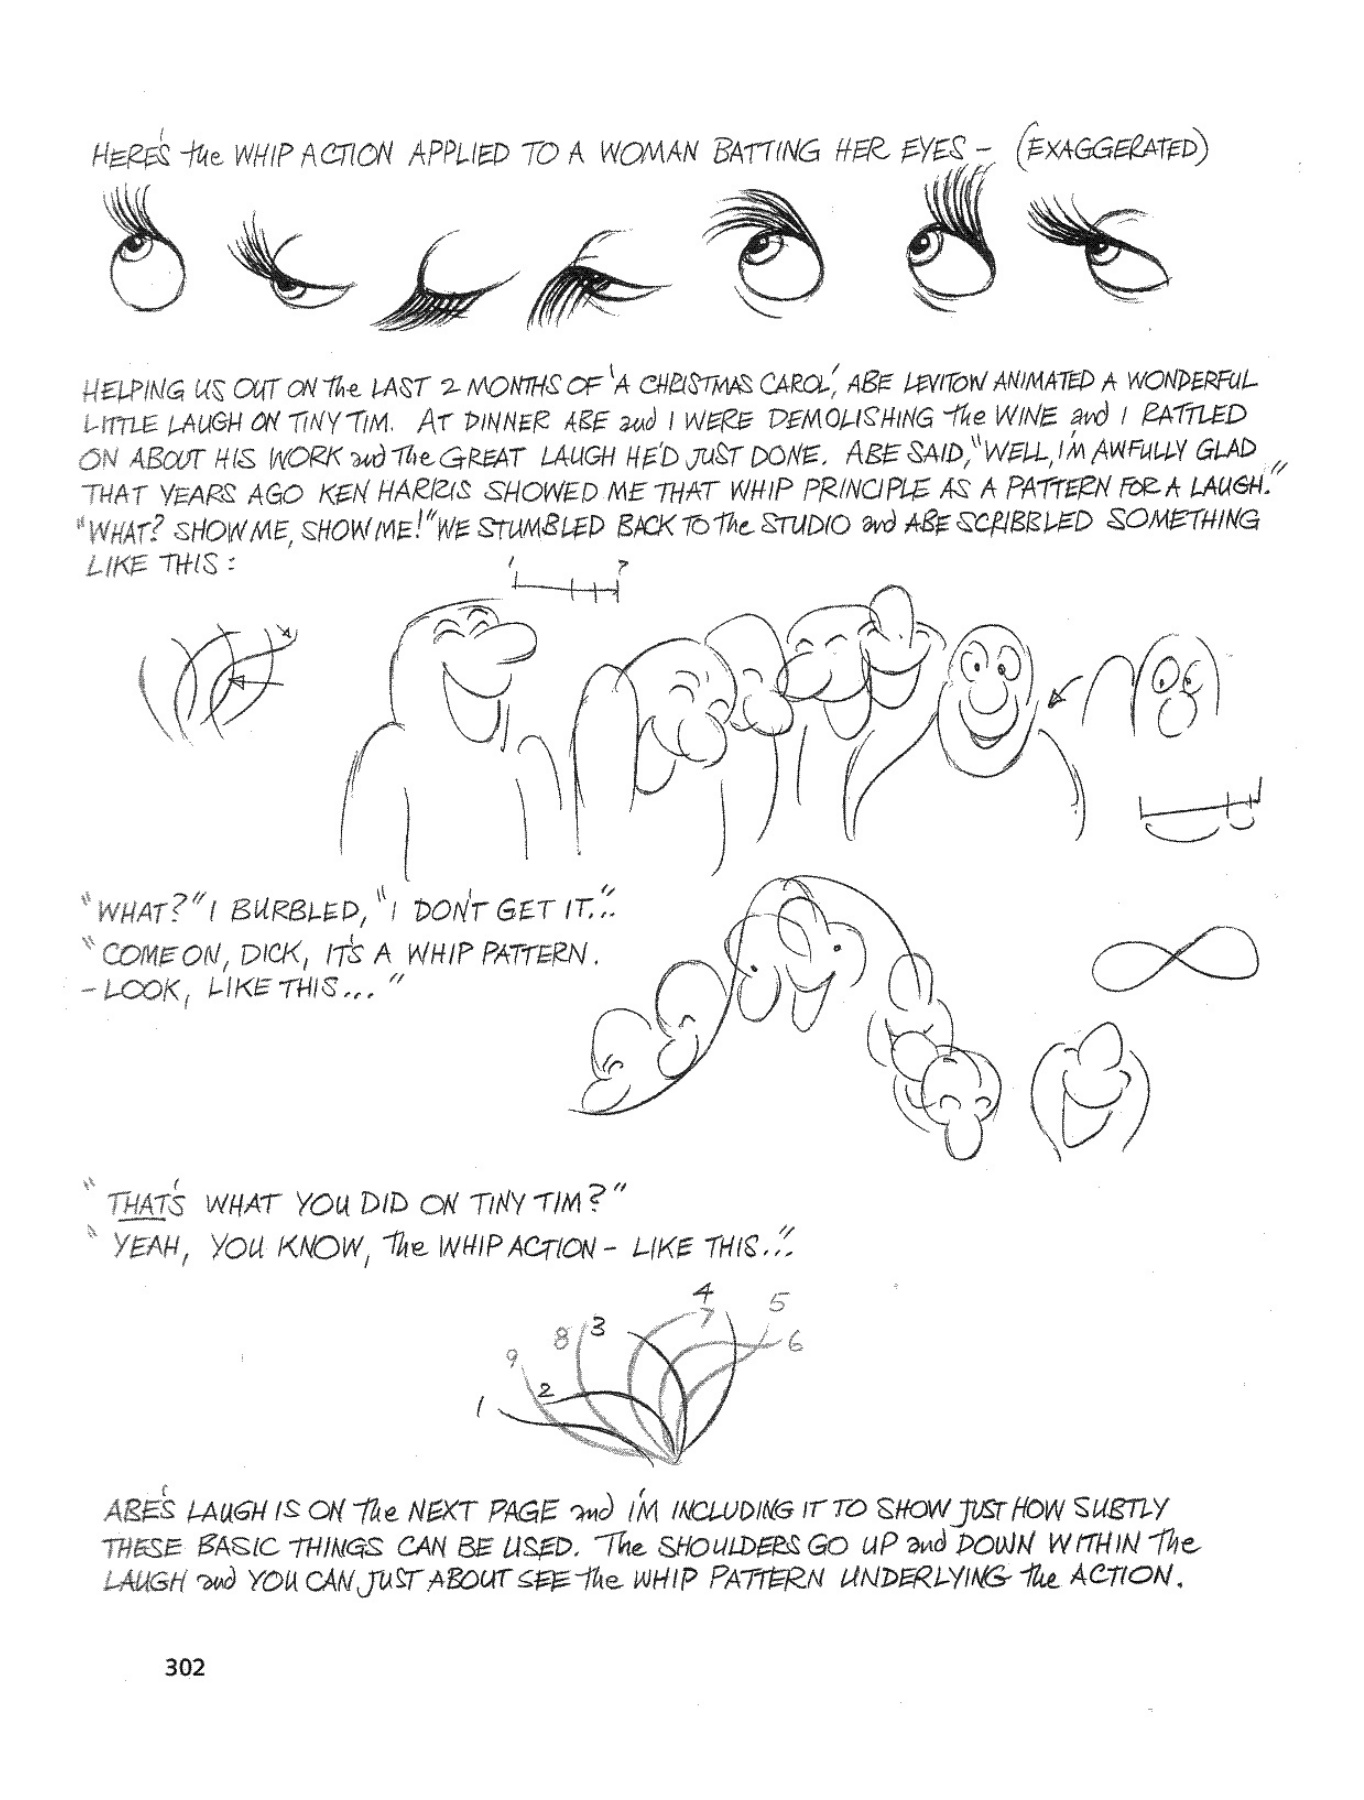 HERE'S the WHIP ACTION APPLIED TO A WOMAN BATTING HER EYES – (EXAGGERATED)
HELPING US OUT ON the LAST 2 MONTHS OF 'A CHRISTMAS CAROL', ABE LEVITOW ANIMATED A WONDERFUL
LITTLE LAUGH ON TINY TIM. AT DINNER ABE and I WERE DEMOLISHING the WINE and I RATTLED
ON ABOUT HIS WORK and The GREAT LAUGH HE'D JUST DONE. ABE SAID, "WELL, I'M AWFULLY GLAD
THAT YEARS AGO KEN HARRIS SHOWED ME THAT WHIP PRINCIPLE AS A PATTERN FOR A LAUGH."
"WHAT? SHOW ME, SHOW ME!" WE STUMBLED BACK TO The STUDIO and ABE SCRIBBLED SOMETHING
LIKE THIS :
1 7
"WHAT?" I BURBLED, "I DON'T GET IT..."
"COME ON, DICK, IT'S A WHIP PATTERN.
– LOOK, LIKE THIS... "
"THAT'S WHAT YOU DID ON TINY TIM?"
"YEAH, YOU KNOW, The WHIP ACTION – LIKE THIS..."
4
5
3
7
8
6
9
2
1
ABE'S LAUGH IS ON The NEXT PAGE and I'M INCLUDING IT TO SHOW JUST HOW SUBTLY
THESE BASIC THINGS CAN BE USED. The SHOULDERS GO UP and DOWN WITHIN The
LAUGH and YOU CAN JUST ABOUT SEE the WHIP PATTERN UNDERLYING the ACTION.
302